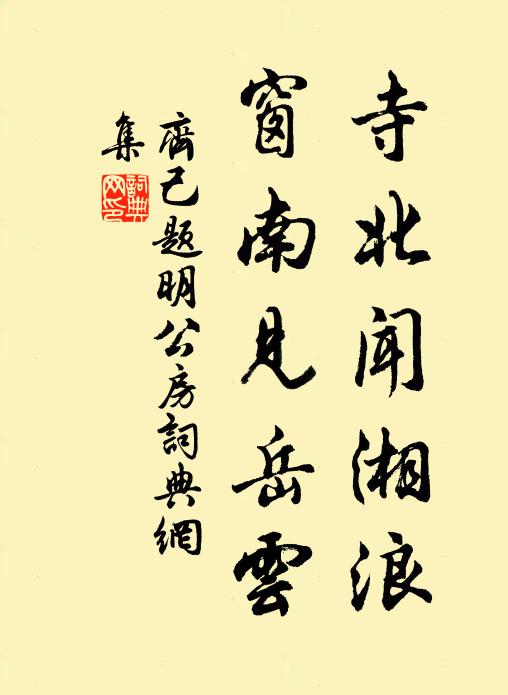 寺北闻湘浪
窗南見岳雲
齊己題明公房詞典網
集
詞典網印